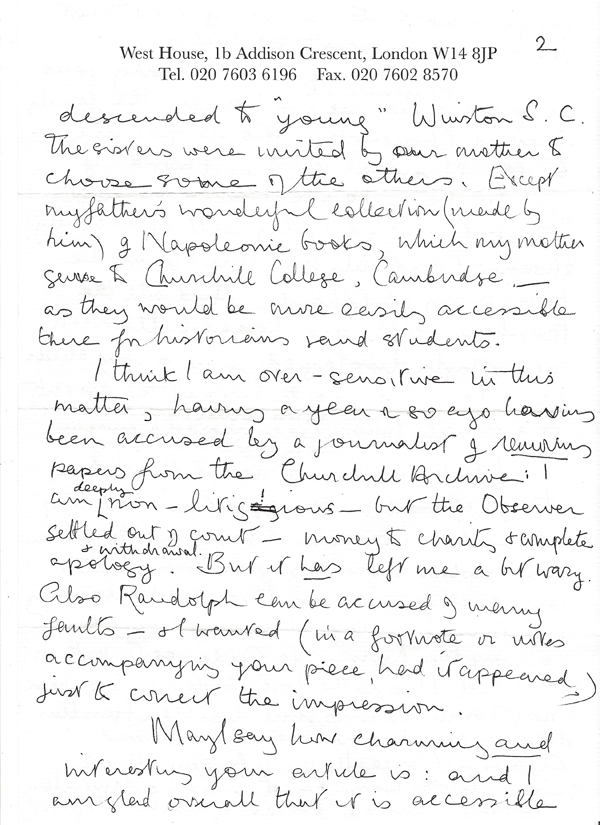 West House, 1b Addison Crescent, London W14 8JP 2
Tel. 020 7603 6196 Fax. 020 7602 8570
descended to "young" Winston S. C.
The sisters were invited by our mother to
choose some of the others. Except
my father's wonderful collection (made by
him) of Napoleonic books, which my mother
gave to Churchill College, Cambridge —
as they would be more easily accessible
there for historians and students.
I think I am over-sensitive in this
matter, having a year or so ago having
been accused by a journalist of removing
papers from the Churchill Archive: I
am deeply non-litigious — but the Observer
settled out of court — money to charity & complete
apology & withdrawal. But it has left me a bit wary.
Also Randolph can be accused of many
faults — & I wanted (in a footnote or notes
accompanying your piece, had it appeared)
just to correct the impression.
May I say how charming and
interesting your article is: and I
am glad overall that it is accessible